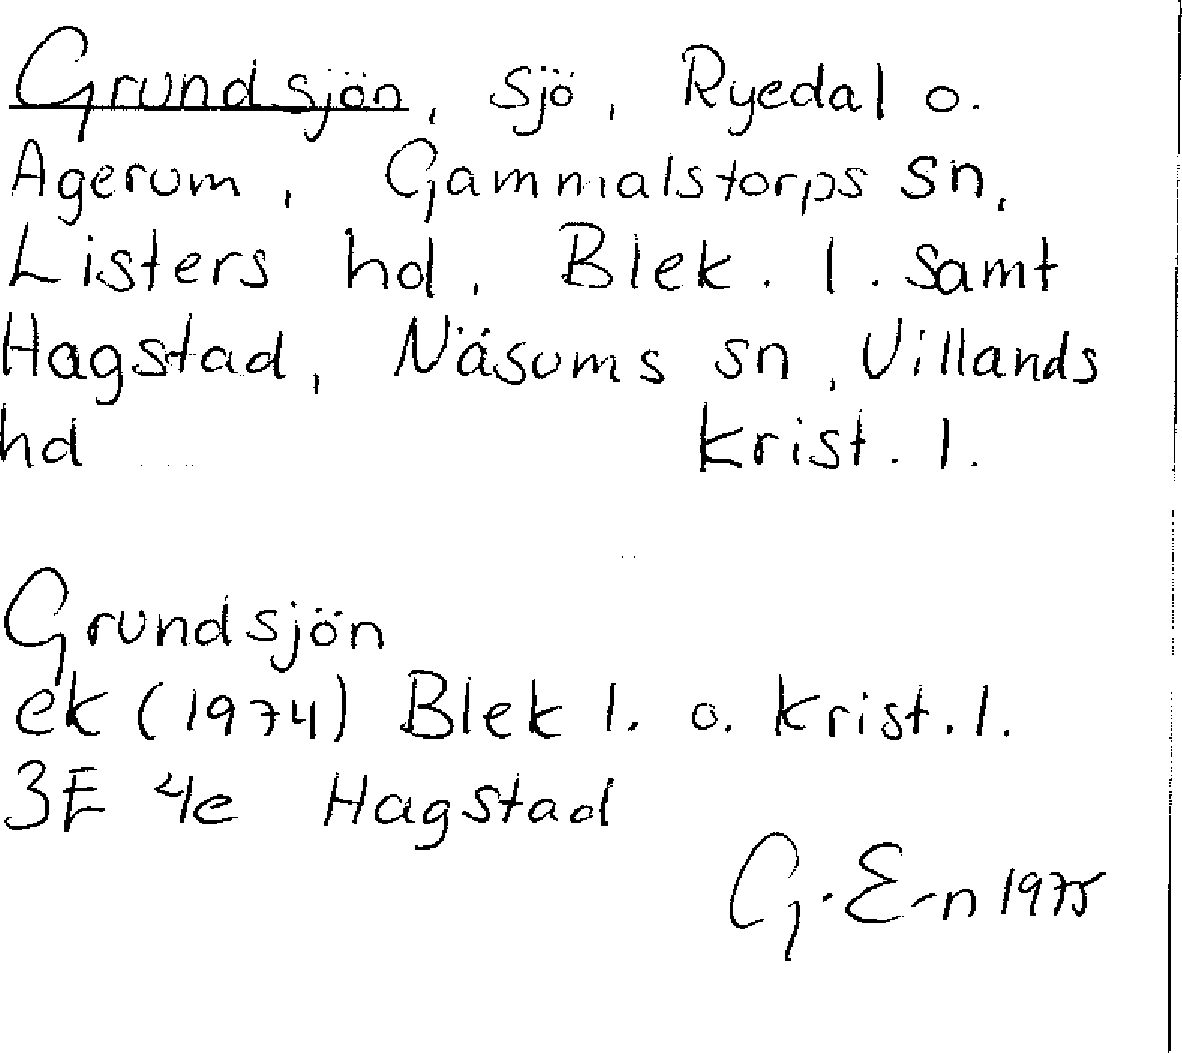 Grundsjön, sjö, Ryedal o.
Agerum, Gammalstorps sn,
Listers hd, Blek. l. samt
Hagstad, Näsums sn, Villands
hd krist. l.
Grundsjön
ek (1974) Blek l. o. krist. l.
3E 4e Hagstad
G. E-n 1975